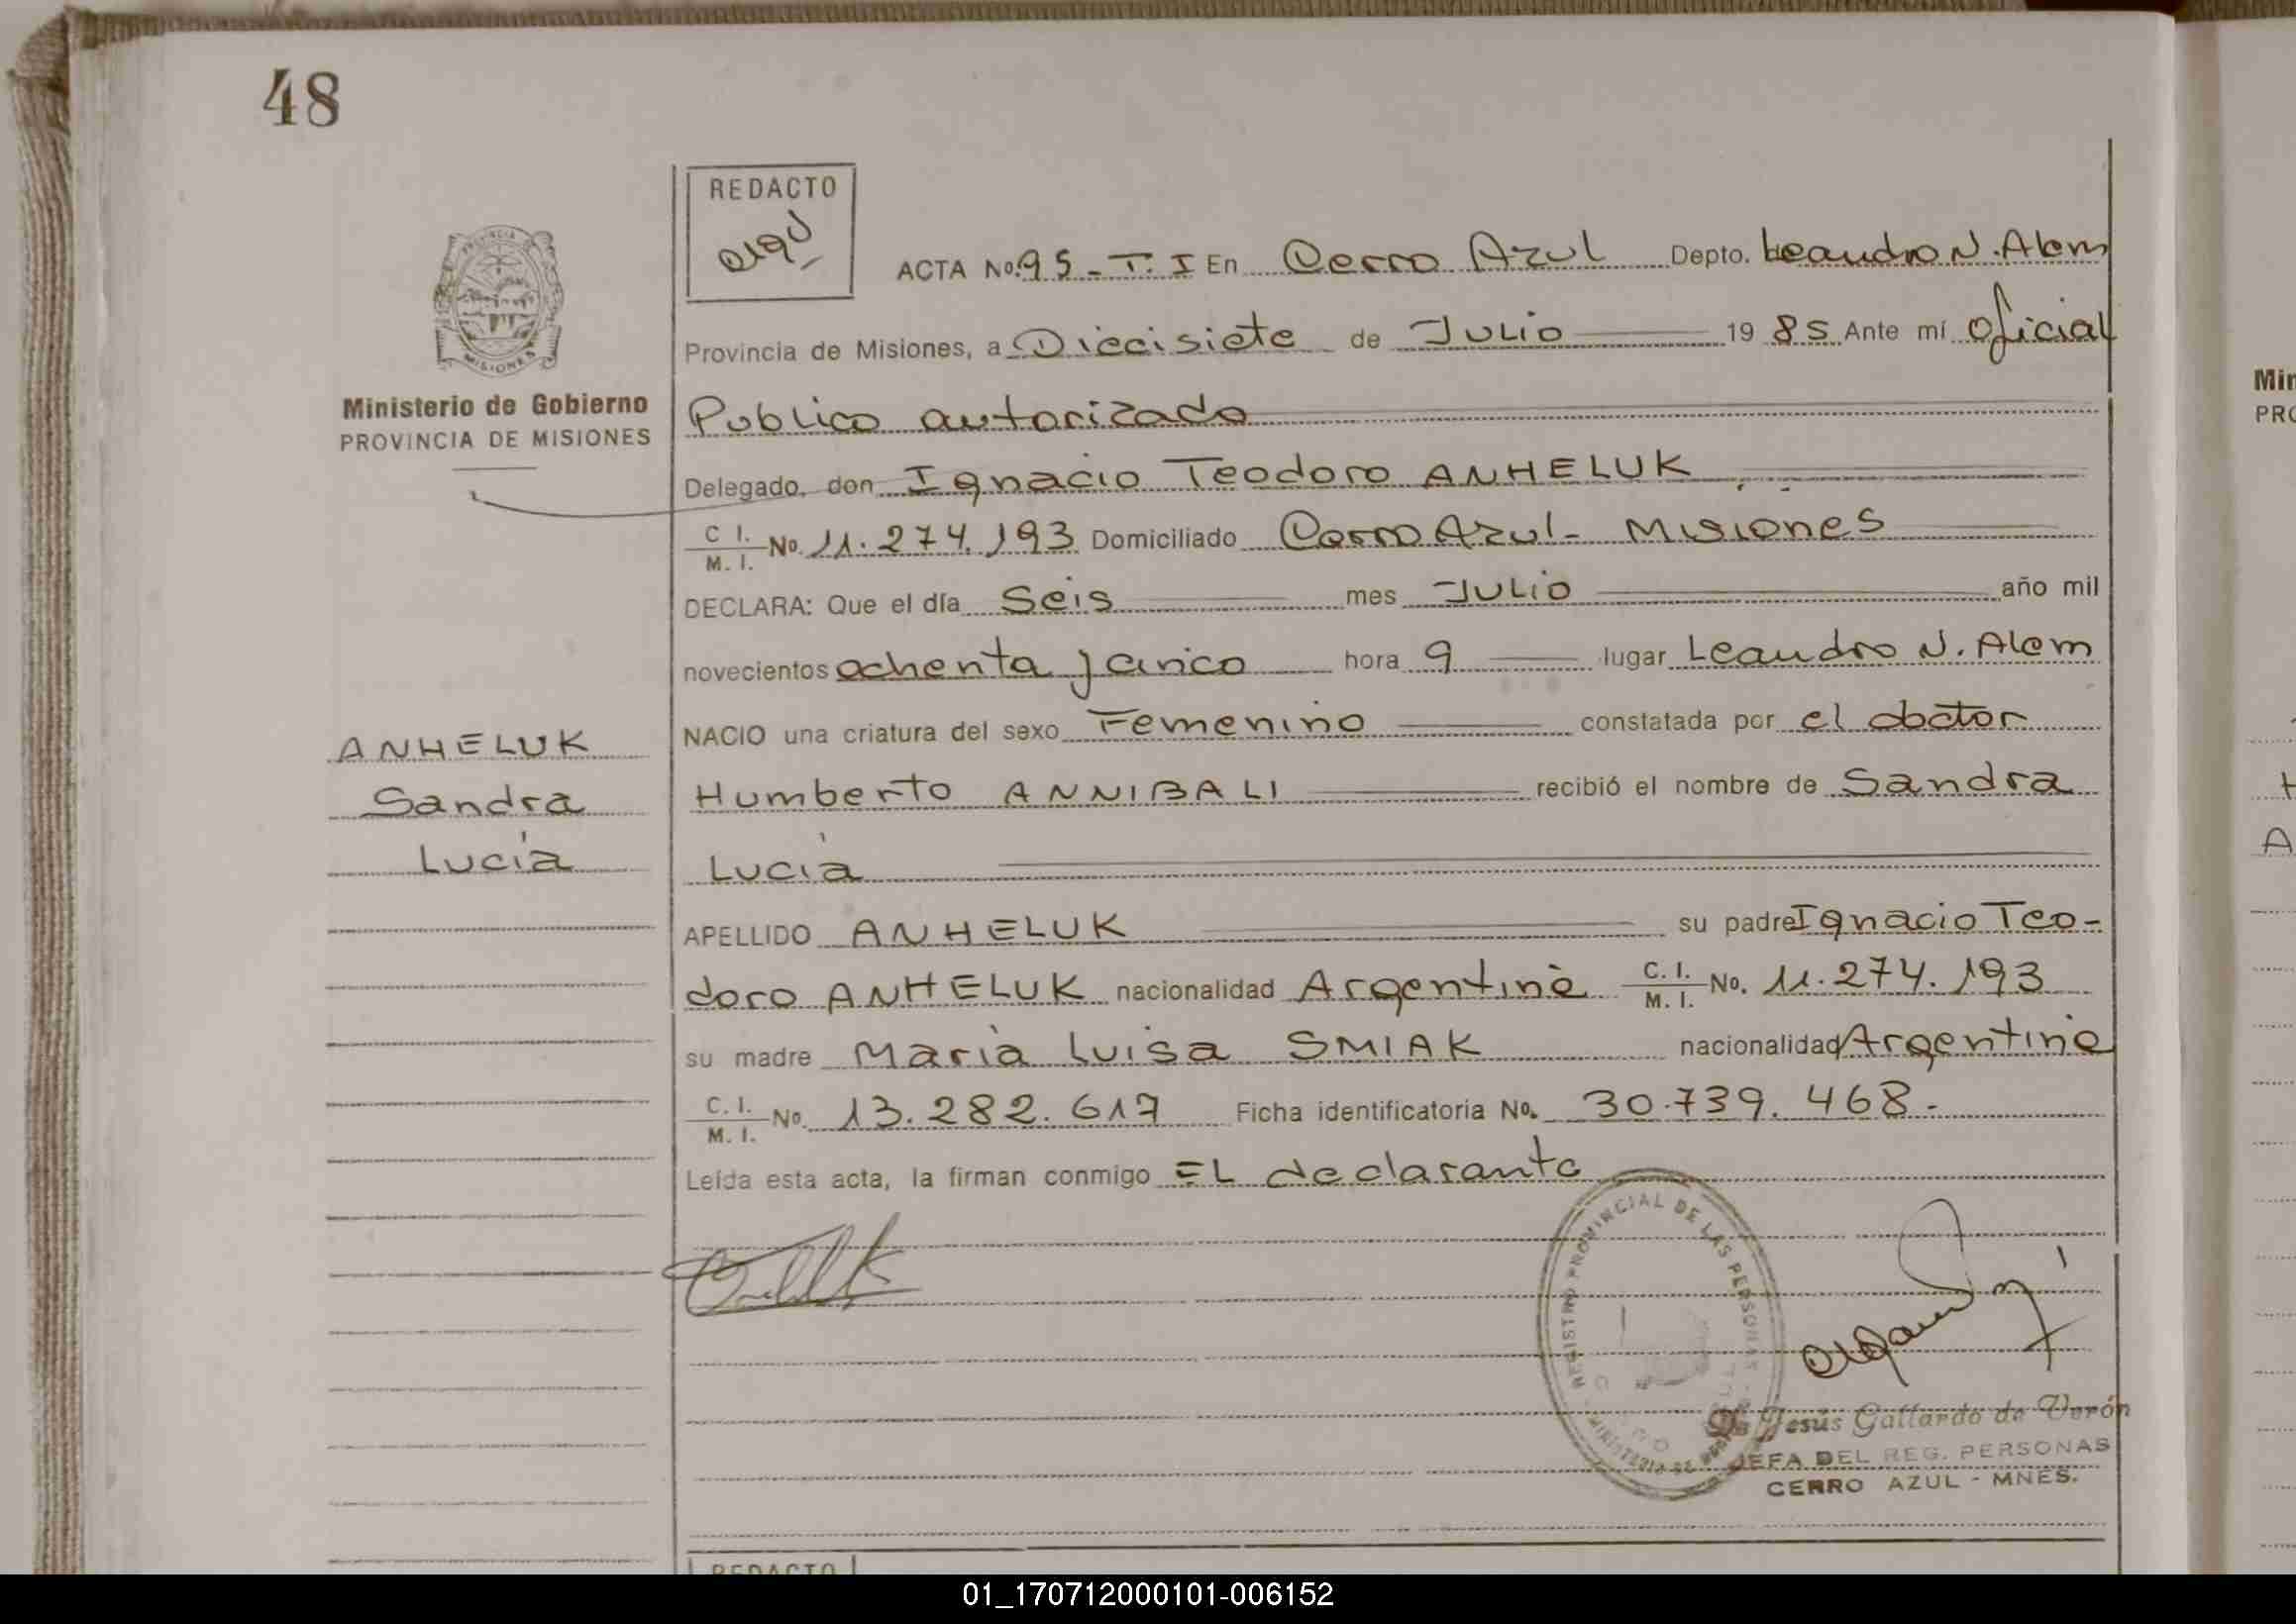 48
REDACTO
ACTA No. 95 - T. I En Cerro Azul Depto. Leandro N. Alem
Provincia de Misiones, a Diecisiete de Julio 19 85 Ante mí Oficial
Publico autorizado
Delegado, don Ignacio Teodoro ANHELUK
C I. / M. I. No. 11.274.193 Domiciliado Cerro Azul - Misiones
DECLARA: Que el día Seis mes Julio año mil
novecientos ochenta y cinco hora 9 lugar Leandro N. Alem
NACIO una criatura del sexo Femenino constatada por el doctor
Humberto ANNIBALI recibió el nombre de Sandra
Lucía
APELLIDO ANHELUK su padre Ignacio Teo-
doro ANHELUK nacionalidad Argentina C. I. / M. I. No. 11.274.193
su madre María Luisa SMIAK nacionalidad Argentina
C. I. / M. I. No. 13.282.617 Ficha identificatoria No. 30.739.468.-
Leída esta acta, la firman conmigo EL declarante
PROVINCIA
MISIONES
Ministerio de Gobierno
PROVINCIA DE MISIONES
ANHELUK
Sandra
Lucía
REGISTRO PROVINCIAL DE LAS PERSONAS
MINISTERIO DE
Jesús Gallardo de Verón
JEFA DEL REG. PERSONAS
CERRO AZUL - MNES.
REDACTO
Min
PRO
A
01_170712000101-006152